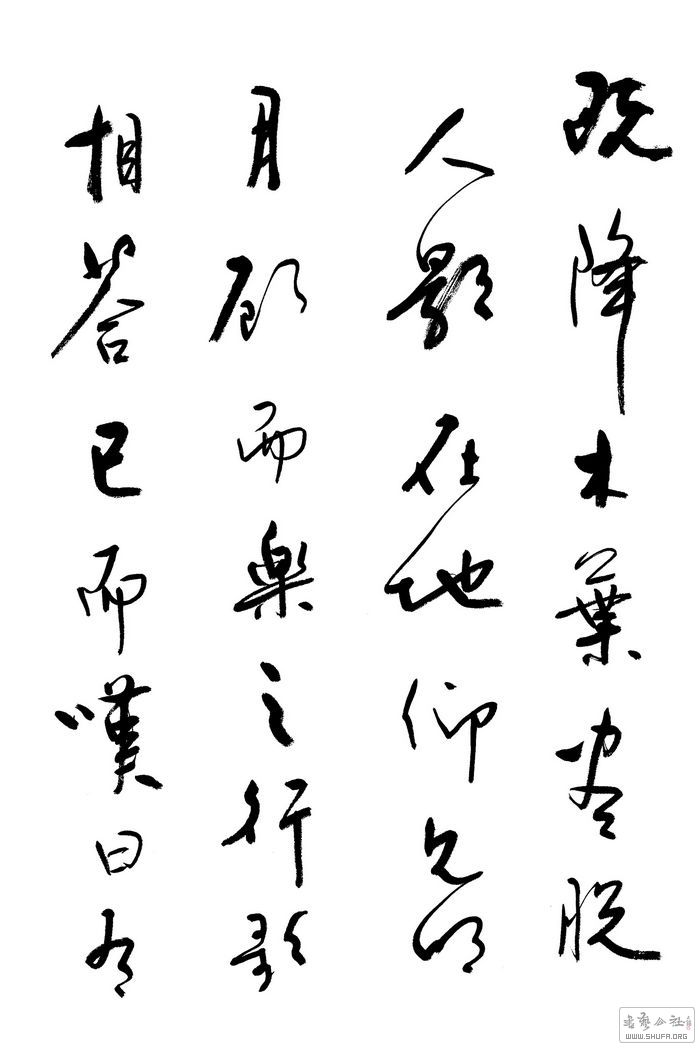 既降木葉盡脱
人影在地仰見明
月顧而樂之行歌
相答已而嘆曰有
書藝公社
WWW.SHUFA.ORG